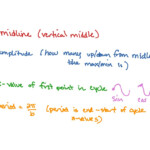 midline (vertical middle)
amplitude (how many up/down from middle
the max/min is)
x-value of first point in cycle
Sin cos
period = 2π/b (period is end-start of cycle
x-values)